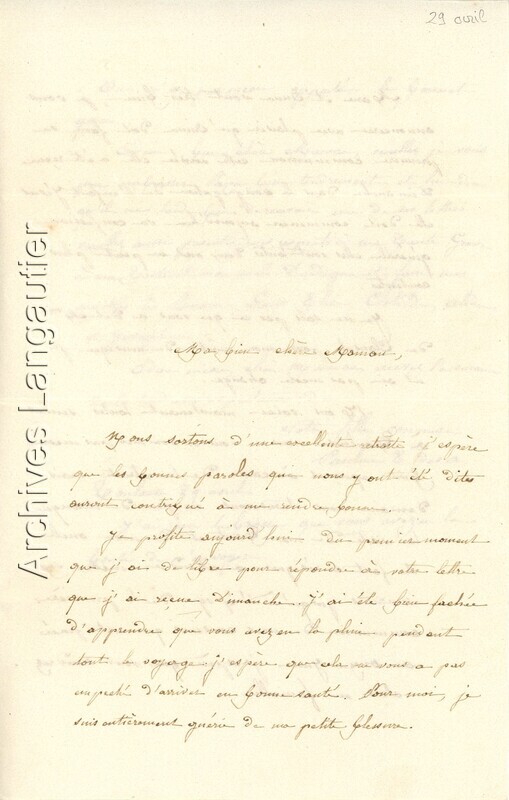 29 avril
Ma bien chère Maman,
Nous sortons d'une excellente retraite j'espère
que les bonnes paroles qui nous y ont été dites
auront contribué à me rendre bonne.
Je profite aujourd'hui du premier moment
que j'ai de libre pour répondre à votre lettre
que j'ai reçue Dimanche. J'ai été bien fachée
d'apprendre que vous avez eu la pluie pendant
tout le voyage j'espère que cela ne vous a pas
empêché d'arriver en bonne santé. Pour moi, je
suis entièrement guérie de ma petite blessure.
Archives Langautier